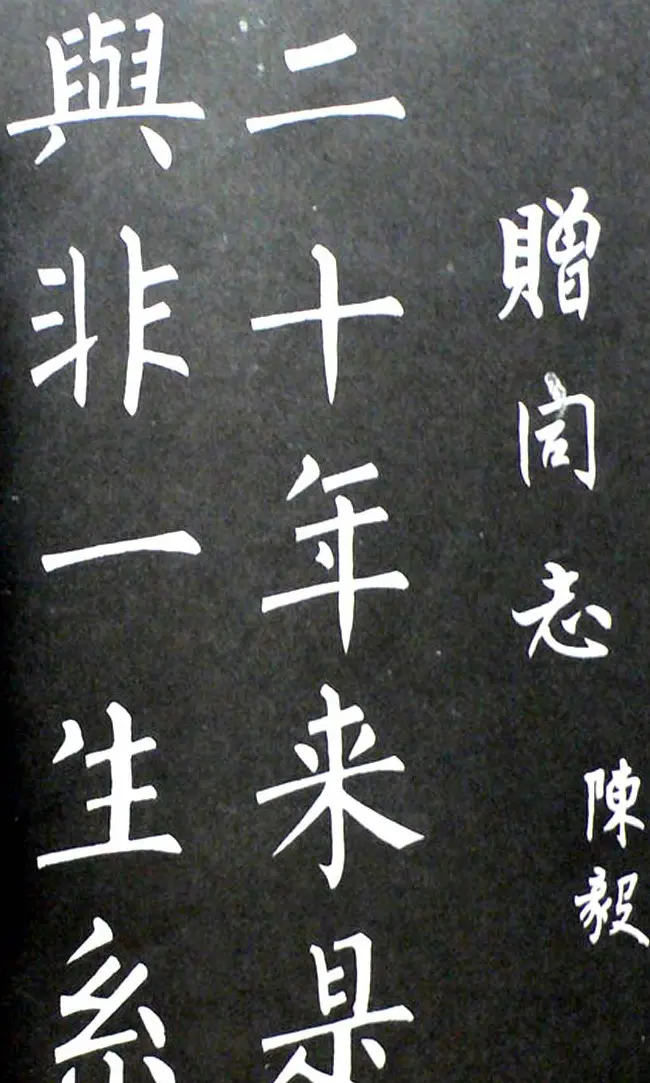 贈同志
陳毅
二十年来是
與非一生系